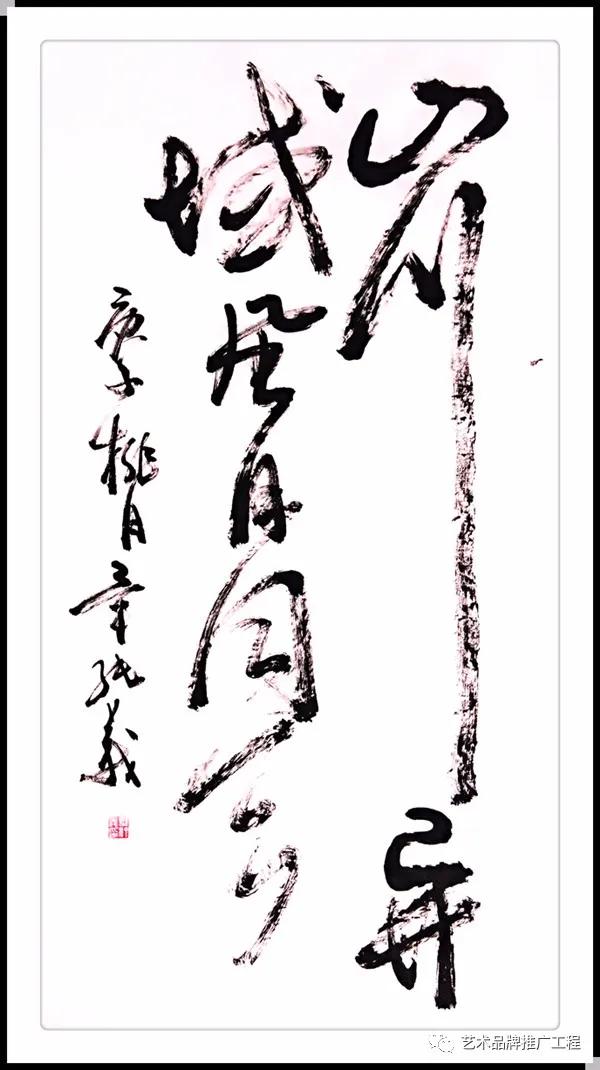 山川异
域风月同天
庚子桃月章義
艺术品牌推广工程